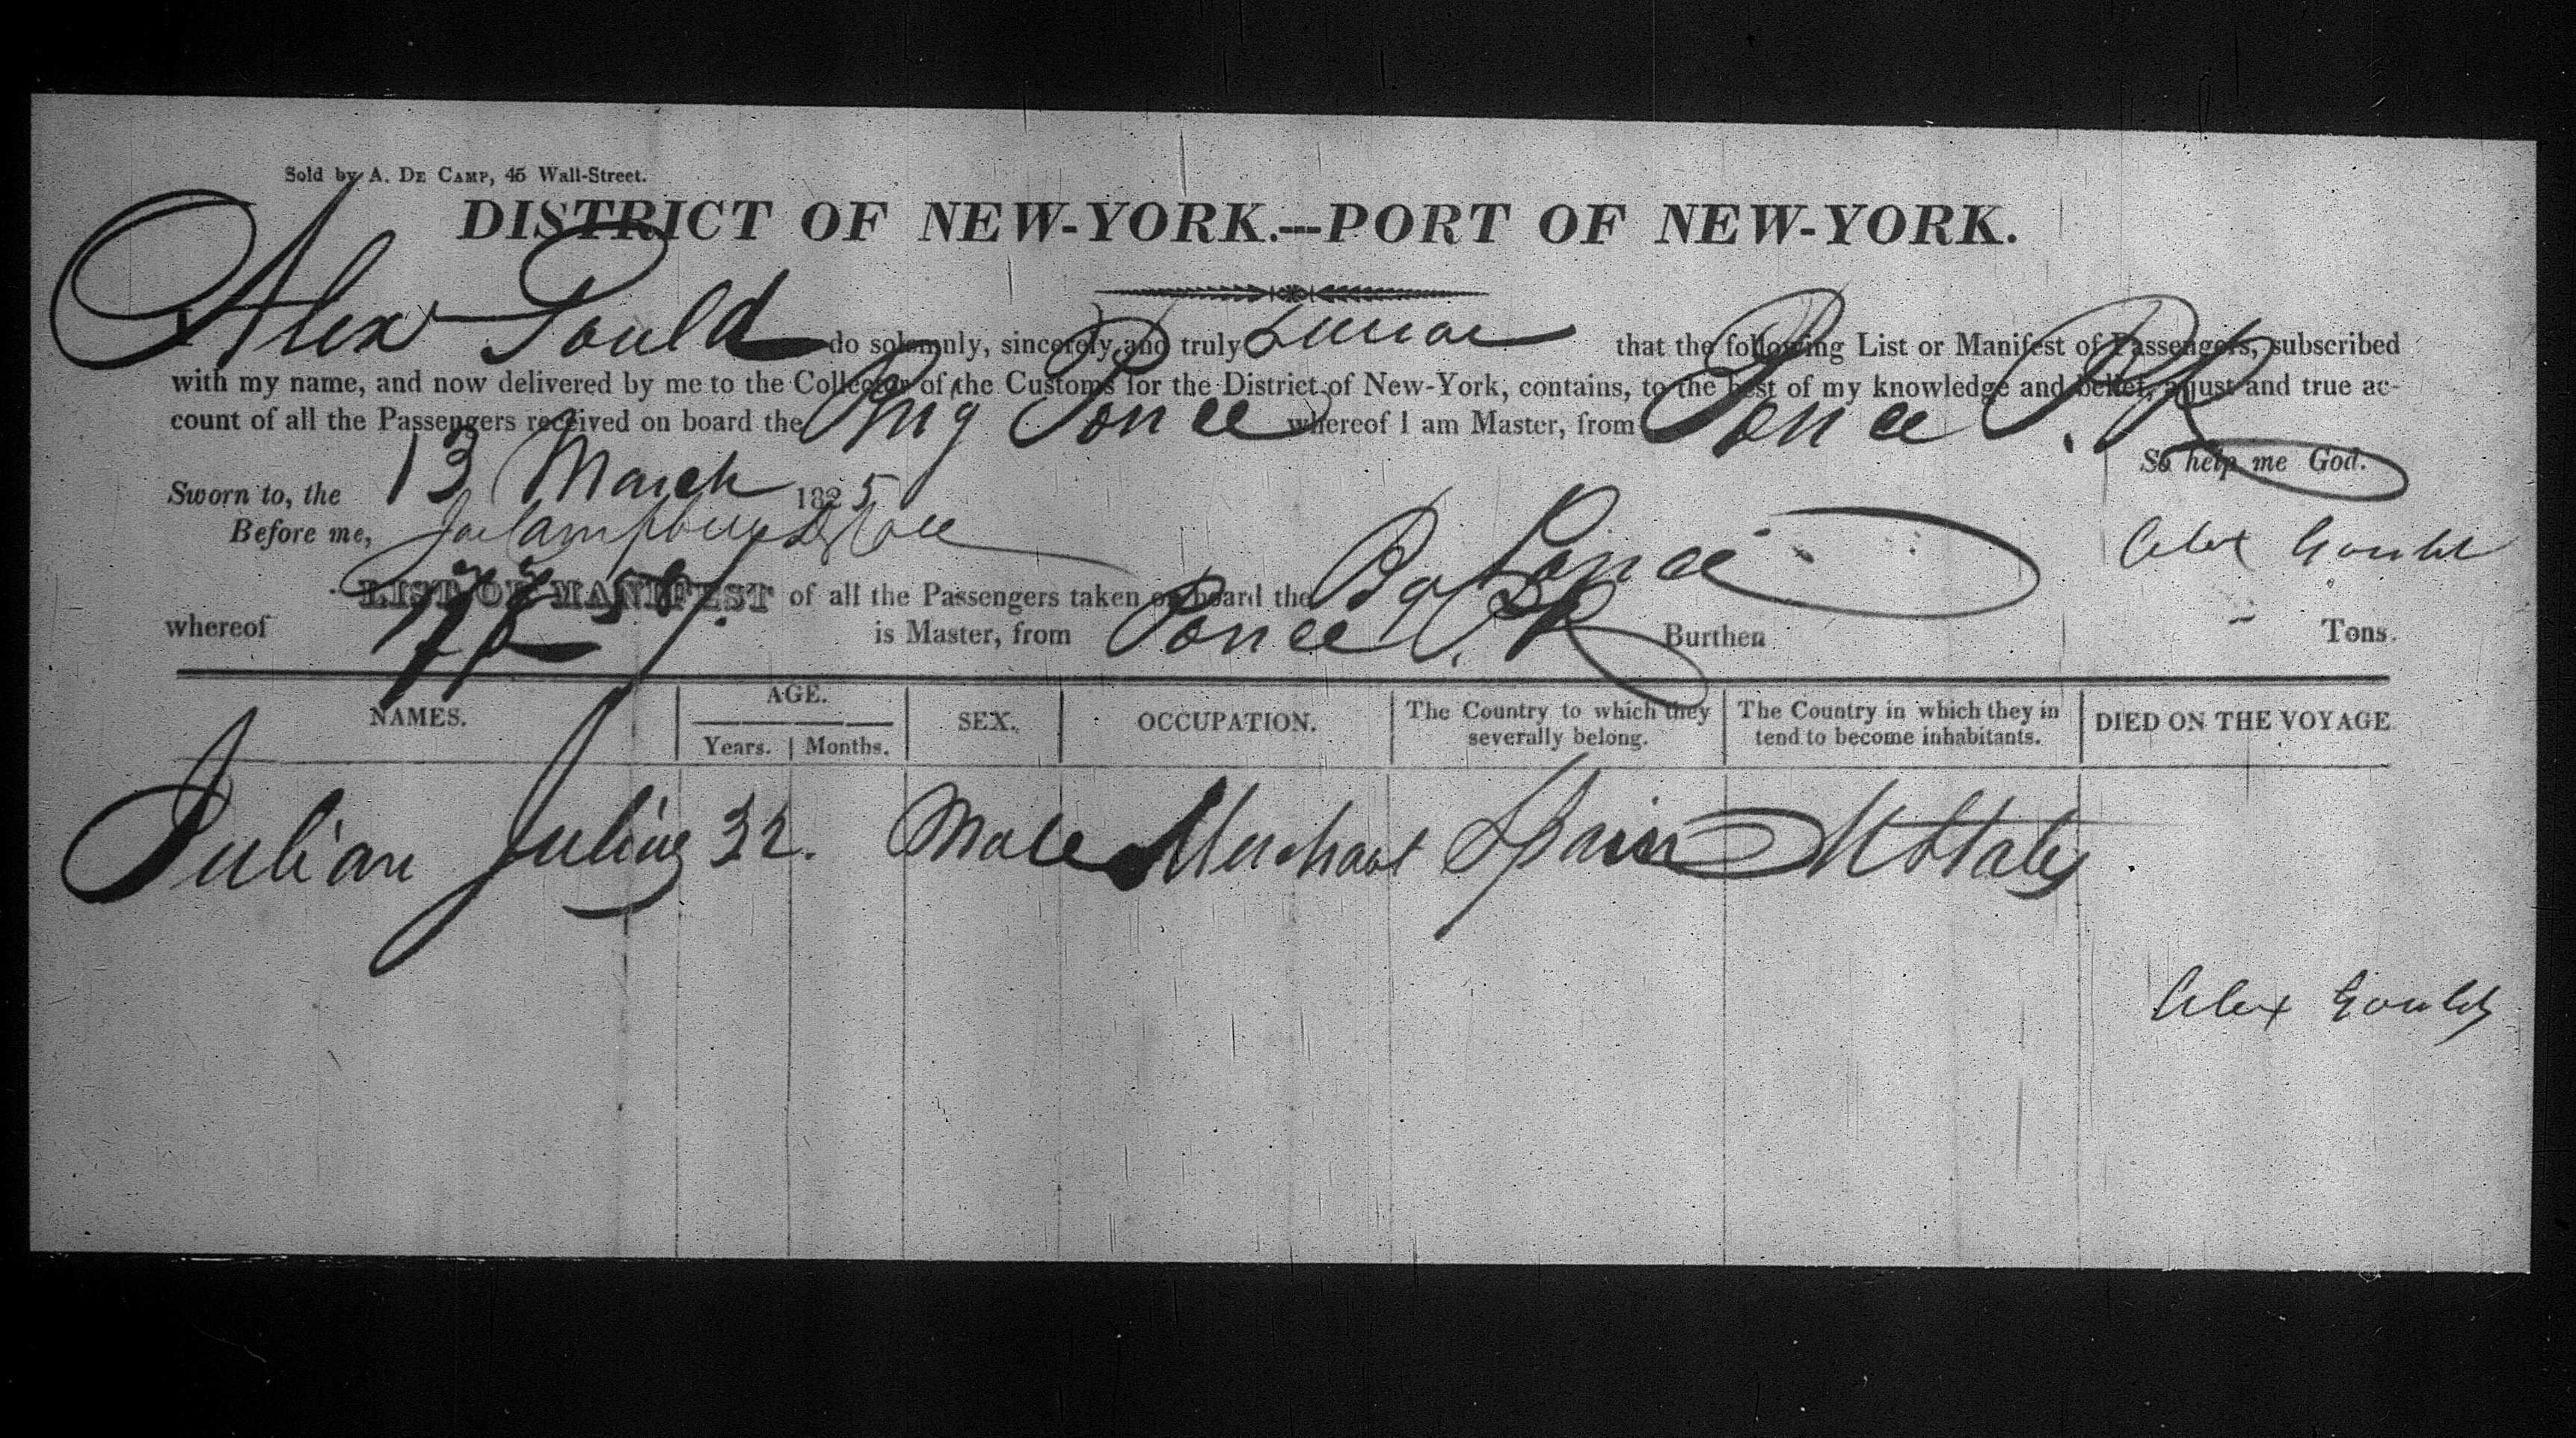 Sold by A. DE CAMP, 45 Wall-Street.
DISTRICT OF NEW-YORK.---PORT OF NEW-YORK.
Alex Gould do solemnly, sincerely and truly Swear that the following List or Manifest of Passengers, subscribed
with my name, and now delivered by me to the Collector of the Customs for the District of New-York, contains, to the best of my knowledge and belief, a just and true ac-
count of all the Passengers received on board the Brig Ponce whereof I am Master, from Ponce P.R
So help me God.
Sworn to, the 13 March 1825
Before me, Alex Gould
LIST OR MANIFEST of all the Passengers taken on board the Bg Ponce
whereof is Master, from Ponce P.R Burthen Tons.
NAMES. AGE. Years. Months. SEX. OCCUPATION. The Country to which they severally belong. The Country in which they in tend to become inhabitants. DIED ON THE VOYAGE
Julian 32. Male Merchant Spain U States
Alex Gould